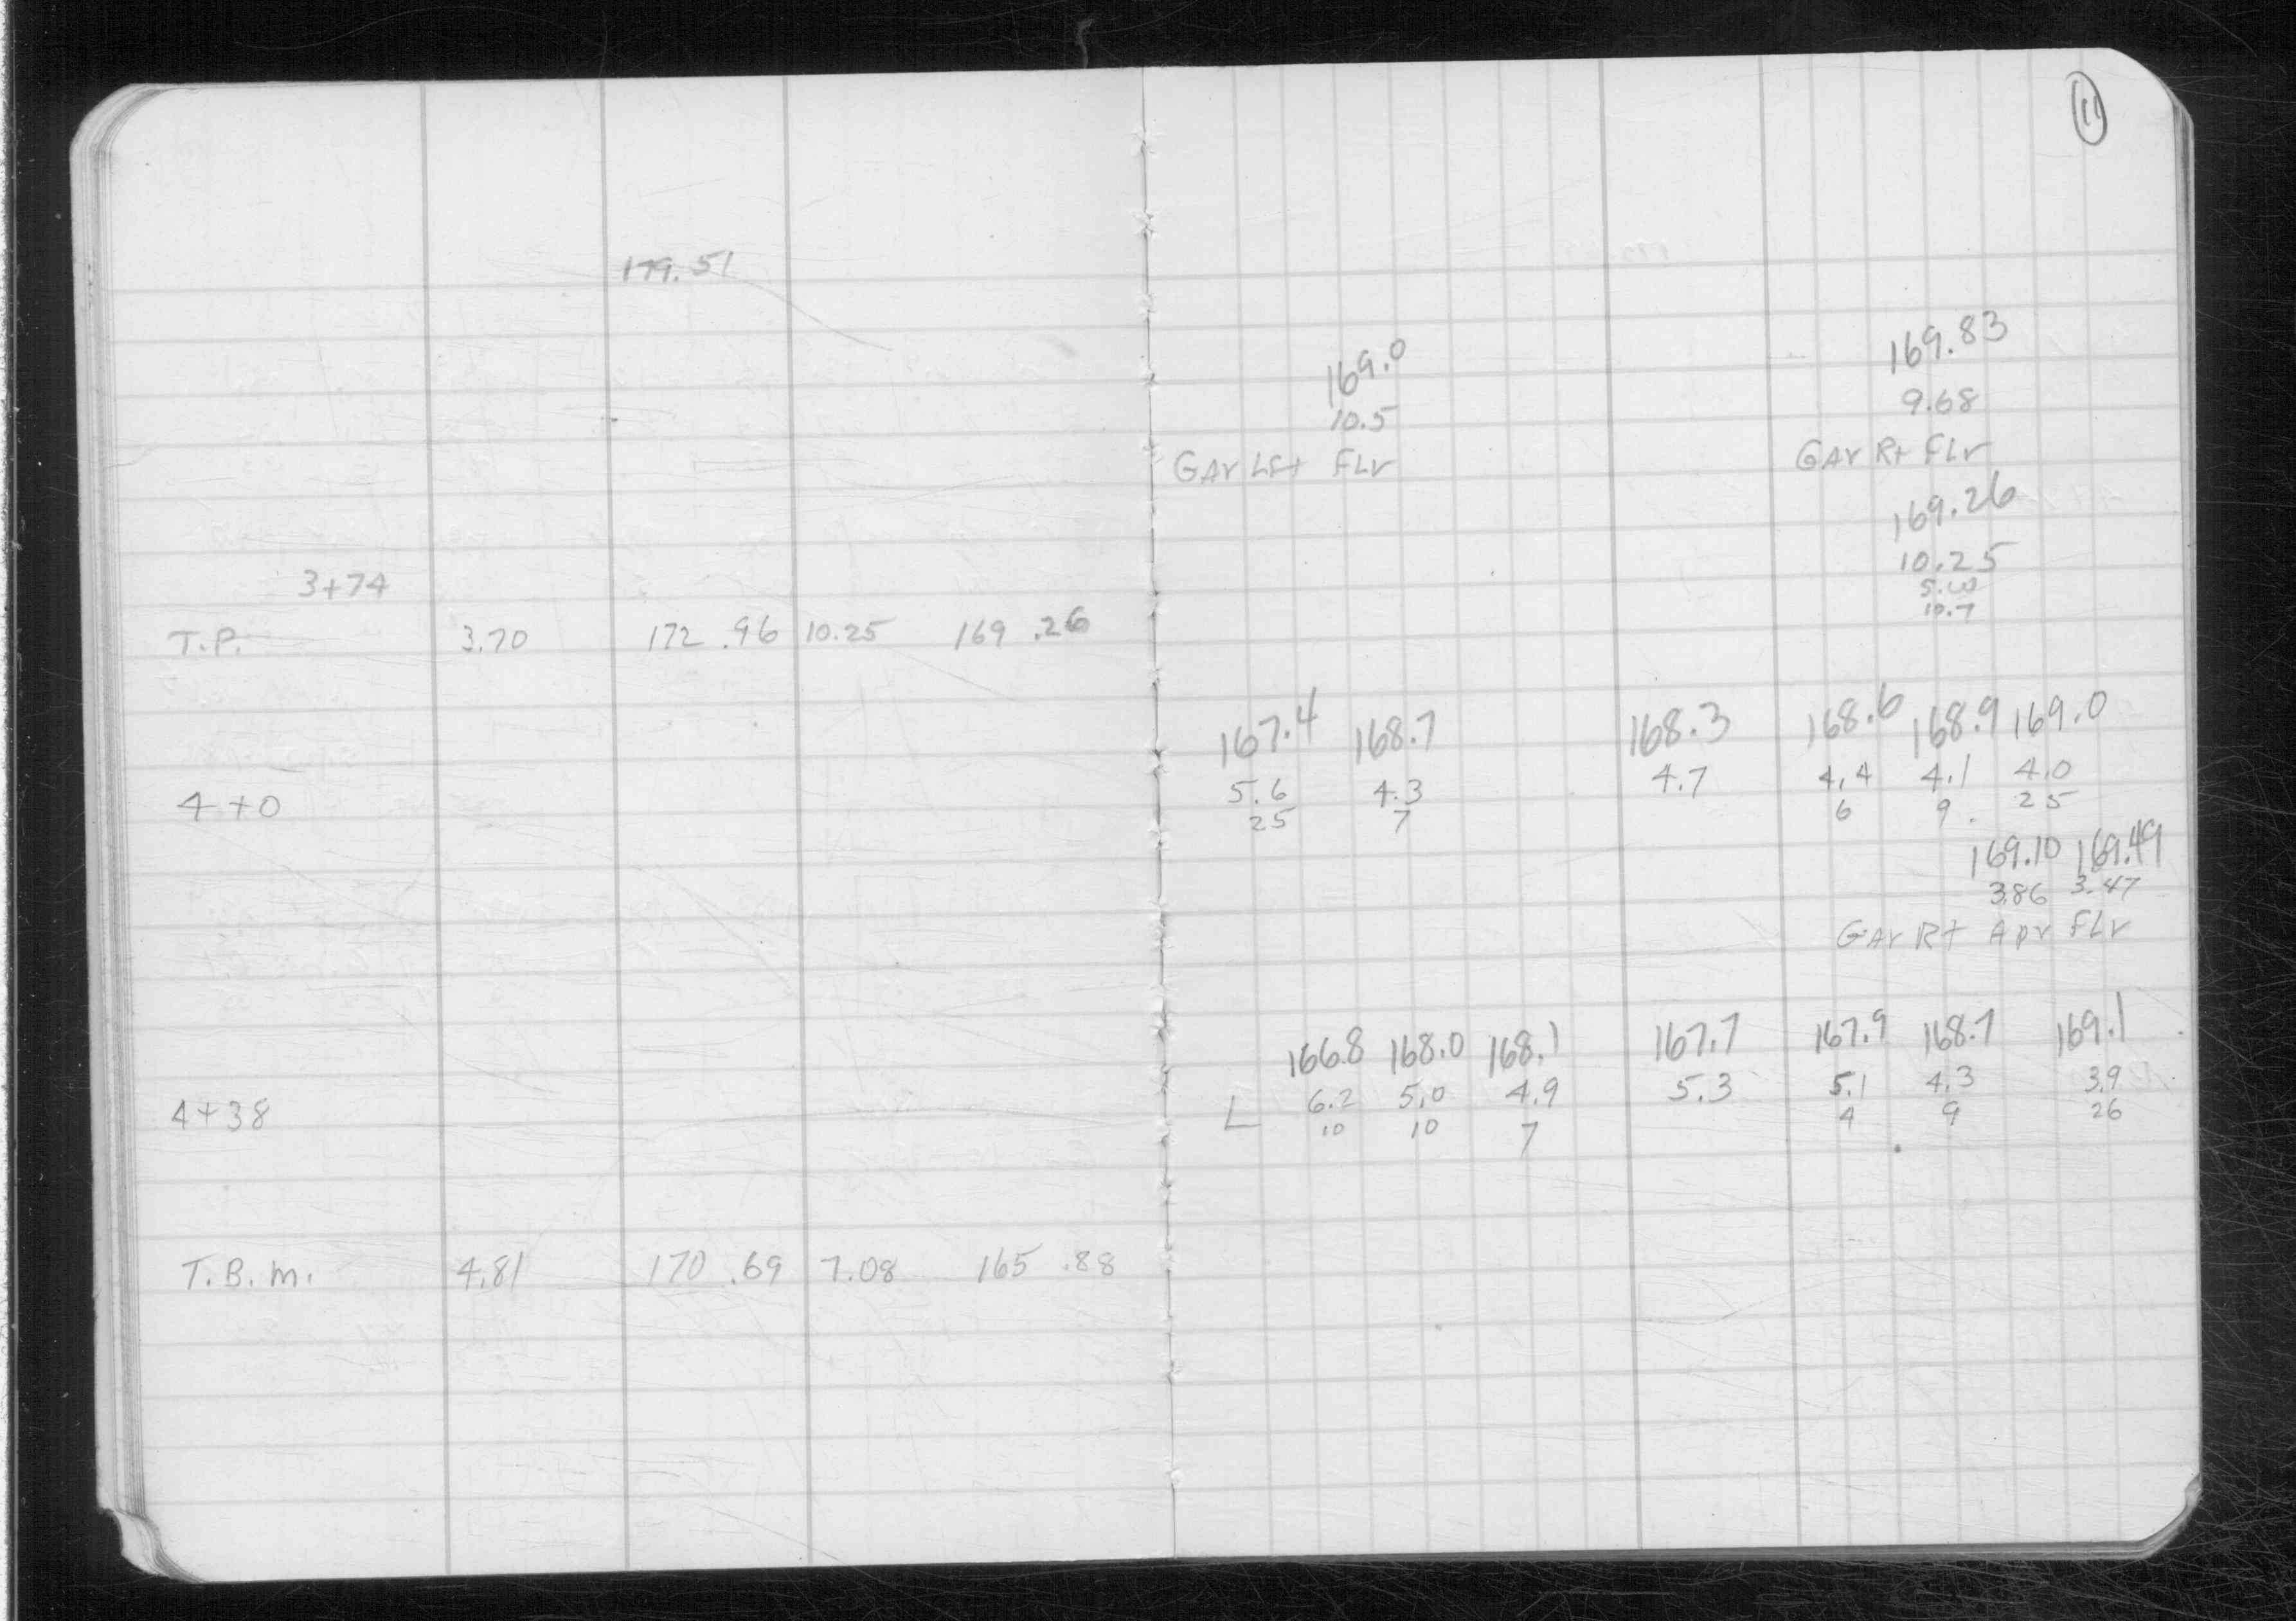 11
179.51
169.0 169.83
10.5 9.68
GAr Lft FLr GAr Rt FLr
169.26
3+74 10.25
10.7
T.P. 3.70 172 .96 10.25 169 .26
167.4 168.7 168.3 168.6 168.9 169.0
4+0 5.6 4.3 4.7 4.4 4.1 4.0
25 7 6 9 25
169.10 169.49
3.86 3.47
GAr Rt Apr FLr
166.8 168.0 168.1 167.7 167.9 168.7 169.1
4+38 L 6.2 5.0 4.9 5.3 5.1 4.3 3.9
10 10 7 4 9 26
T.B.M. 4.81 170 .69 7.08 165 .88